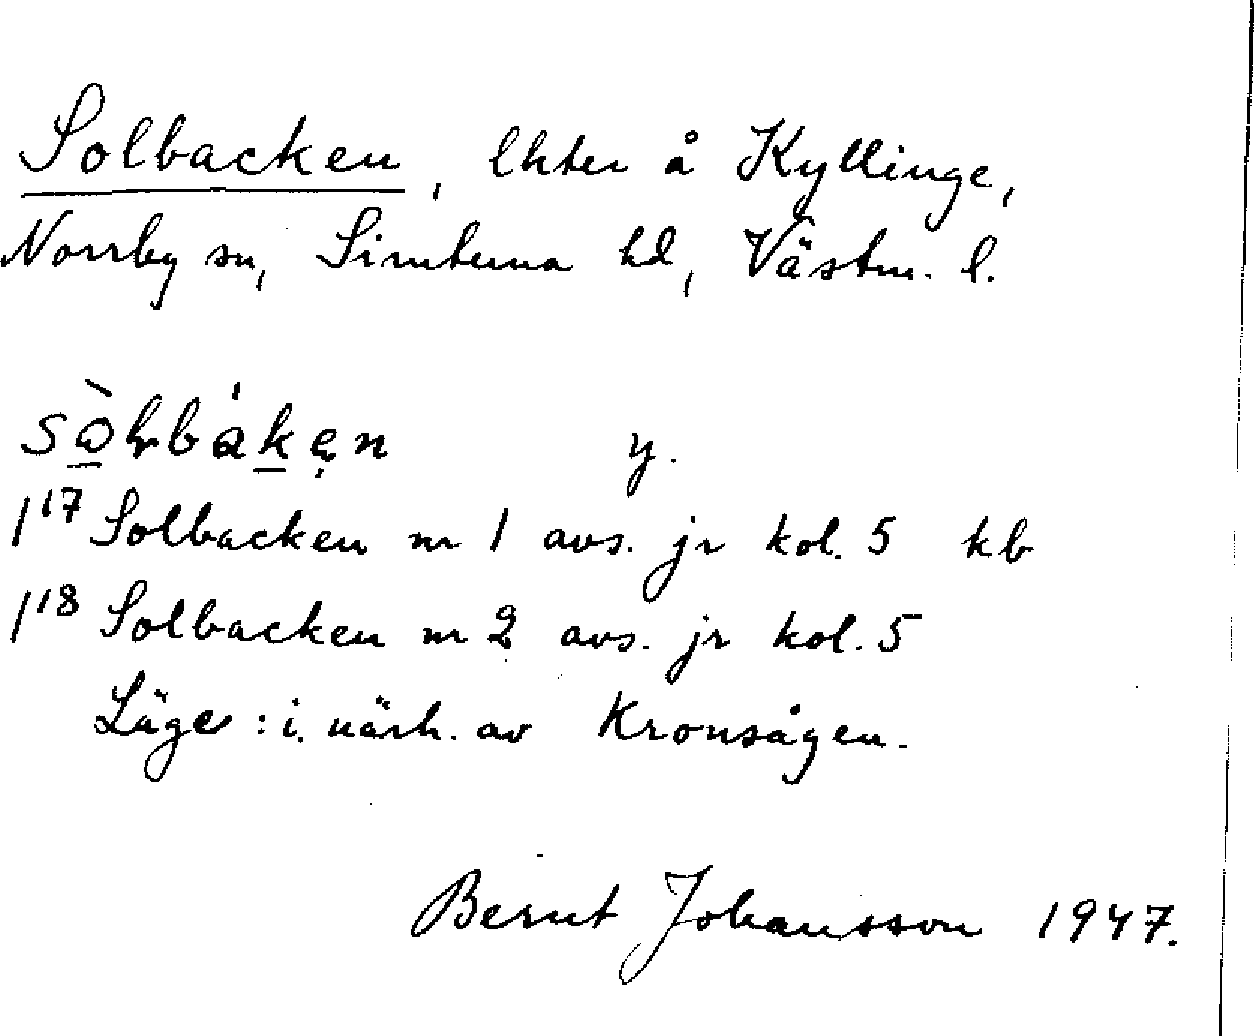 Solbacken, lhter å Kyllinge,
Norrby sn, Simtuna hd, Västm. l.
y.
1¹⁷ Solbacken nr 1 avs. jr kol. 5 kb
1¹⁸ Solbacken nr 2 avs. jr kol. 5
Läge: i. närh. av Kronsågen.
Bernt Johansson 1947.